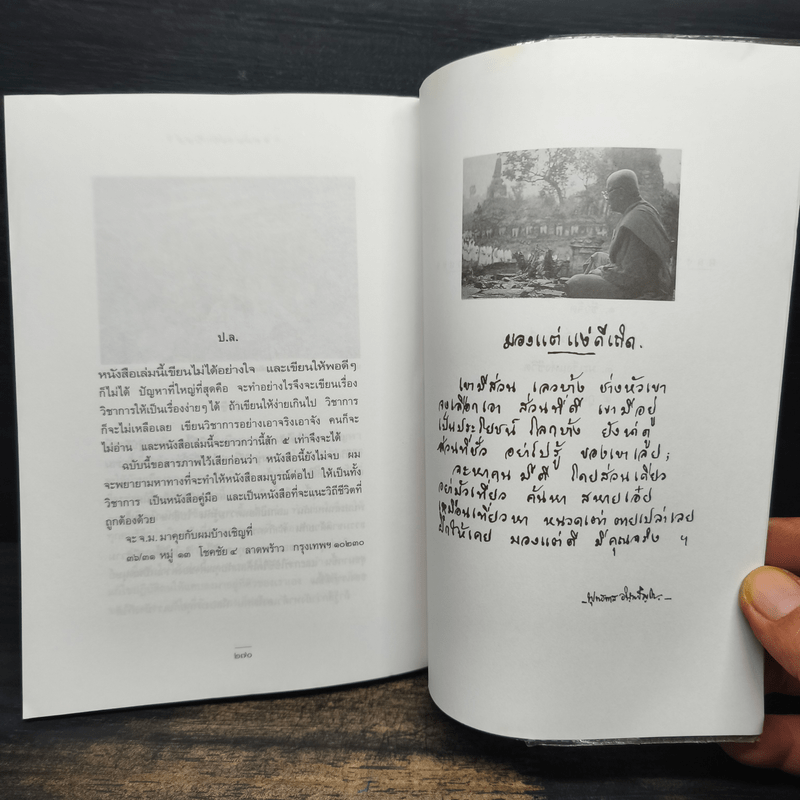 ป.ล.
หนังสือเล่มนี้เขียนไม่ได้อย่างใจ และเขียนให้พอดีๆ
ก็ไม่ได้ ปัญหาที่ใหญ่ที่สุดคือ จะทำอย่างไรจึงจะเขียนเรื่อง
วิชาการให้เป็นเรื่องง่ายๆ ได้ ถ้าเขียนให้ง่ายเกินไป วิชาการ
ก็จะไม่เหลือเลย เขียนวิชาการอย่างเอาจริงเอาจัง คนก็จะ
ไม่อ่าน และหนังสือเล่มนี้จะยาวกว่านี้สัก ๕ เท่าจึงจะได้
ฉบับนี้ขอสารภาพไว้เสียก่อนว่า หนังสือนี้ยังไม่จบ ผม
จะพยายามหาทางที่จะทำให้หนังสือสมบูรณ์ต่อไป ให้เป็นทั้ง
วิชาการ เป็นหนังสือคู่มือ และเป็นหนังสือที่จะแนะวิถีชีวิตที่
ถูกต้องด้วย
จะ จ.ม. มาคุยกับผมบ้างเชิญที่
๓๖/๓๑ หมู่ ๑๓ โชคชัย ๔ ลาดพร้าว กรุงเทพฯ ๑๐๒๓๐
๒๗๐
มองแต่แง่ดีเถิด.
เขามีส่วน เลวบ้าง ช่างหัวเขา
จงเลือกเอา ส่วนที่ดี เขามีอยู่
เป็นประโยชน์ โลกบ้าง ยังน่าดู
ส่วนที่ชั่ว อย่าไปรู้ ของเขาเลย;
จะหาคน มีดี โดยส่วนเดียว
อย่ามัวเที่ยว ค้นหา สหายเอ๋ย
เหมือนเที่ยวหา หนวดเต่า ตายเปล่าเลย
ฝึกให้เคย มองแต่ดี มีคุณจริง ฯ
พุทธทาส อินทปัญโญ